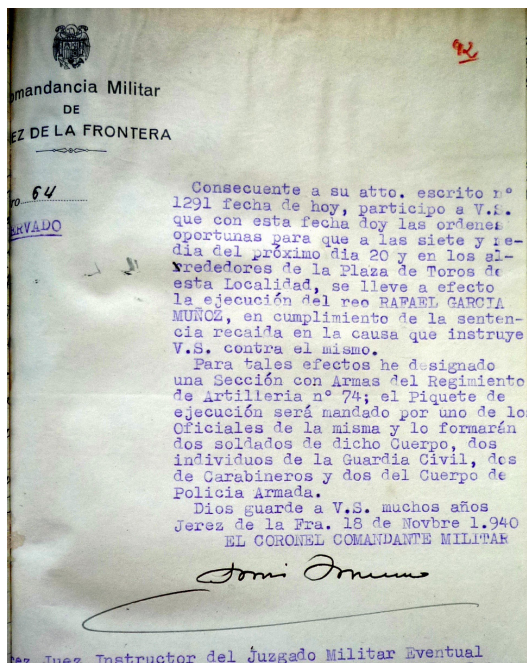 92
omandancia Militar
DE
EZ DE LA FRONTERA
ro 64
ERVADO
Consecuente a su atto. escrito nº
1291 fecha de hoy, participo a V.S.
que con esta fecha doy las ordenes
oportunas para que a las siete y me-
dia del próximo dia 20 y en los al-
rrededores de la Plaza de Toros de
esta Localidad, se lleve a efecto
la ejecución del reo RAFAEL GARCIA
MUÑOZ, en cumplimiento de la senten-
cia recaida en la causa que instruye
V.S. contra el mismo.
Para tales efectos he designado
una Sección con Armas del Regimiento
de Artilleria nº 74; el Piquete de
ejecución será mandado por uno de lo
Oficiales de la misma y lo formarán
dos soldados de dicho Cuerpo, dos
individuos de la Guardia Civil, dos
de Carabineros y dos del Cuerpo de
Policia Armada.
Dios guarde a V.S. muchos años
Jerez de la Fra. 18 de Novbre 1.940
EL CORONEL COMANDANTE MILITAR
Juez Instructor del Juzgado Militar Eventual